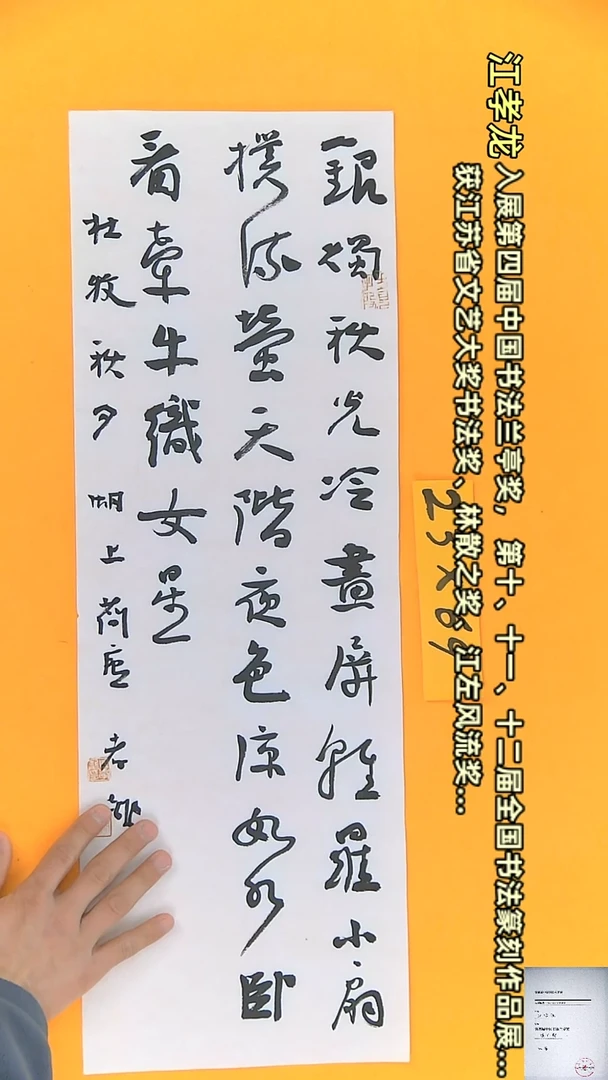 江孝龙 入展第四届中国书法兰亭奖，第十、十一、十二届全国书法篆刻作品展...
获江苏省文艺大奖书法奖、林散之奖、江左风流奖...
銀燭秋光冷畫屏輕羅小扇
撲流螢天階夜色涼如水卧
看牽牛織女星
杜牧秋夕 湖上 孝龍